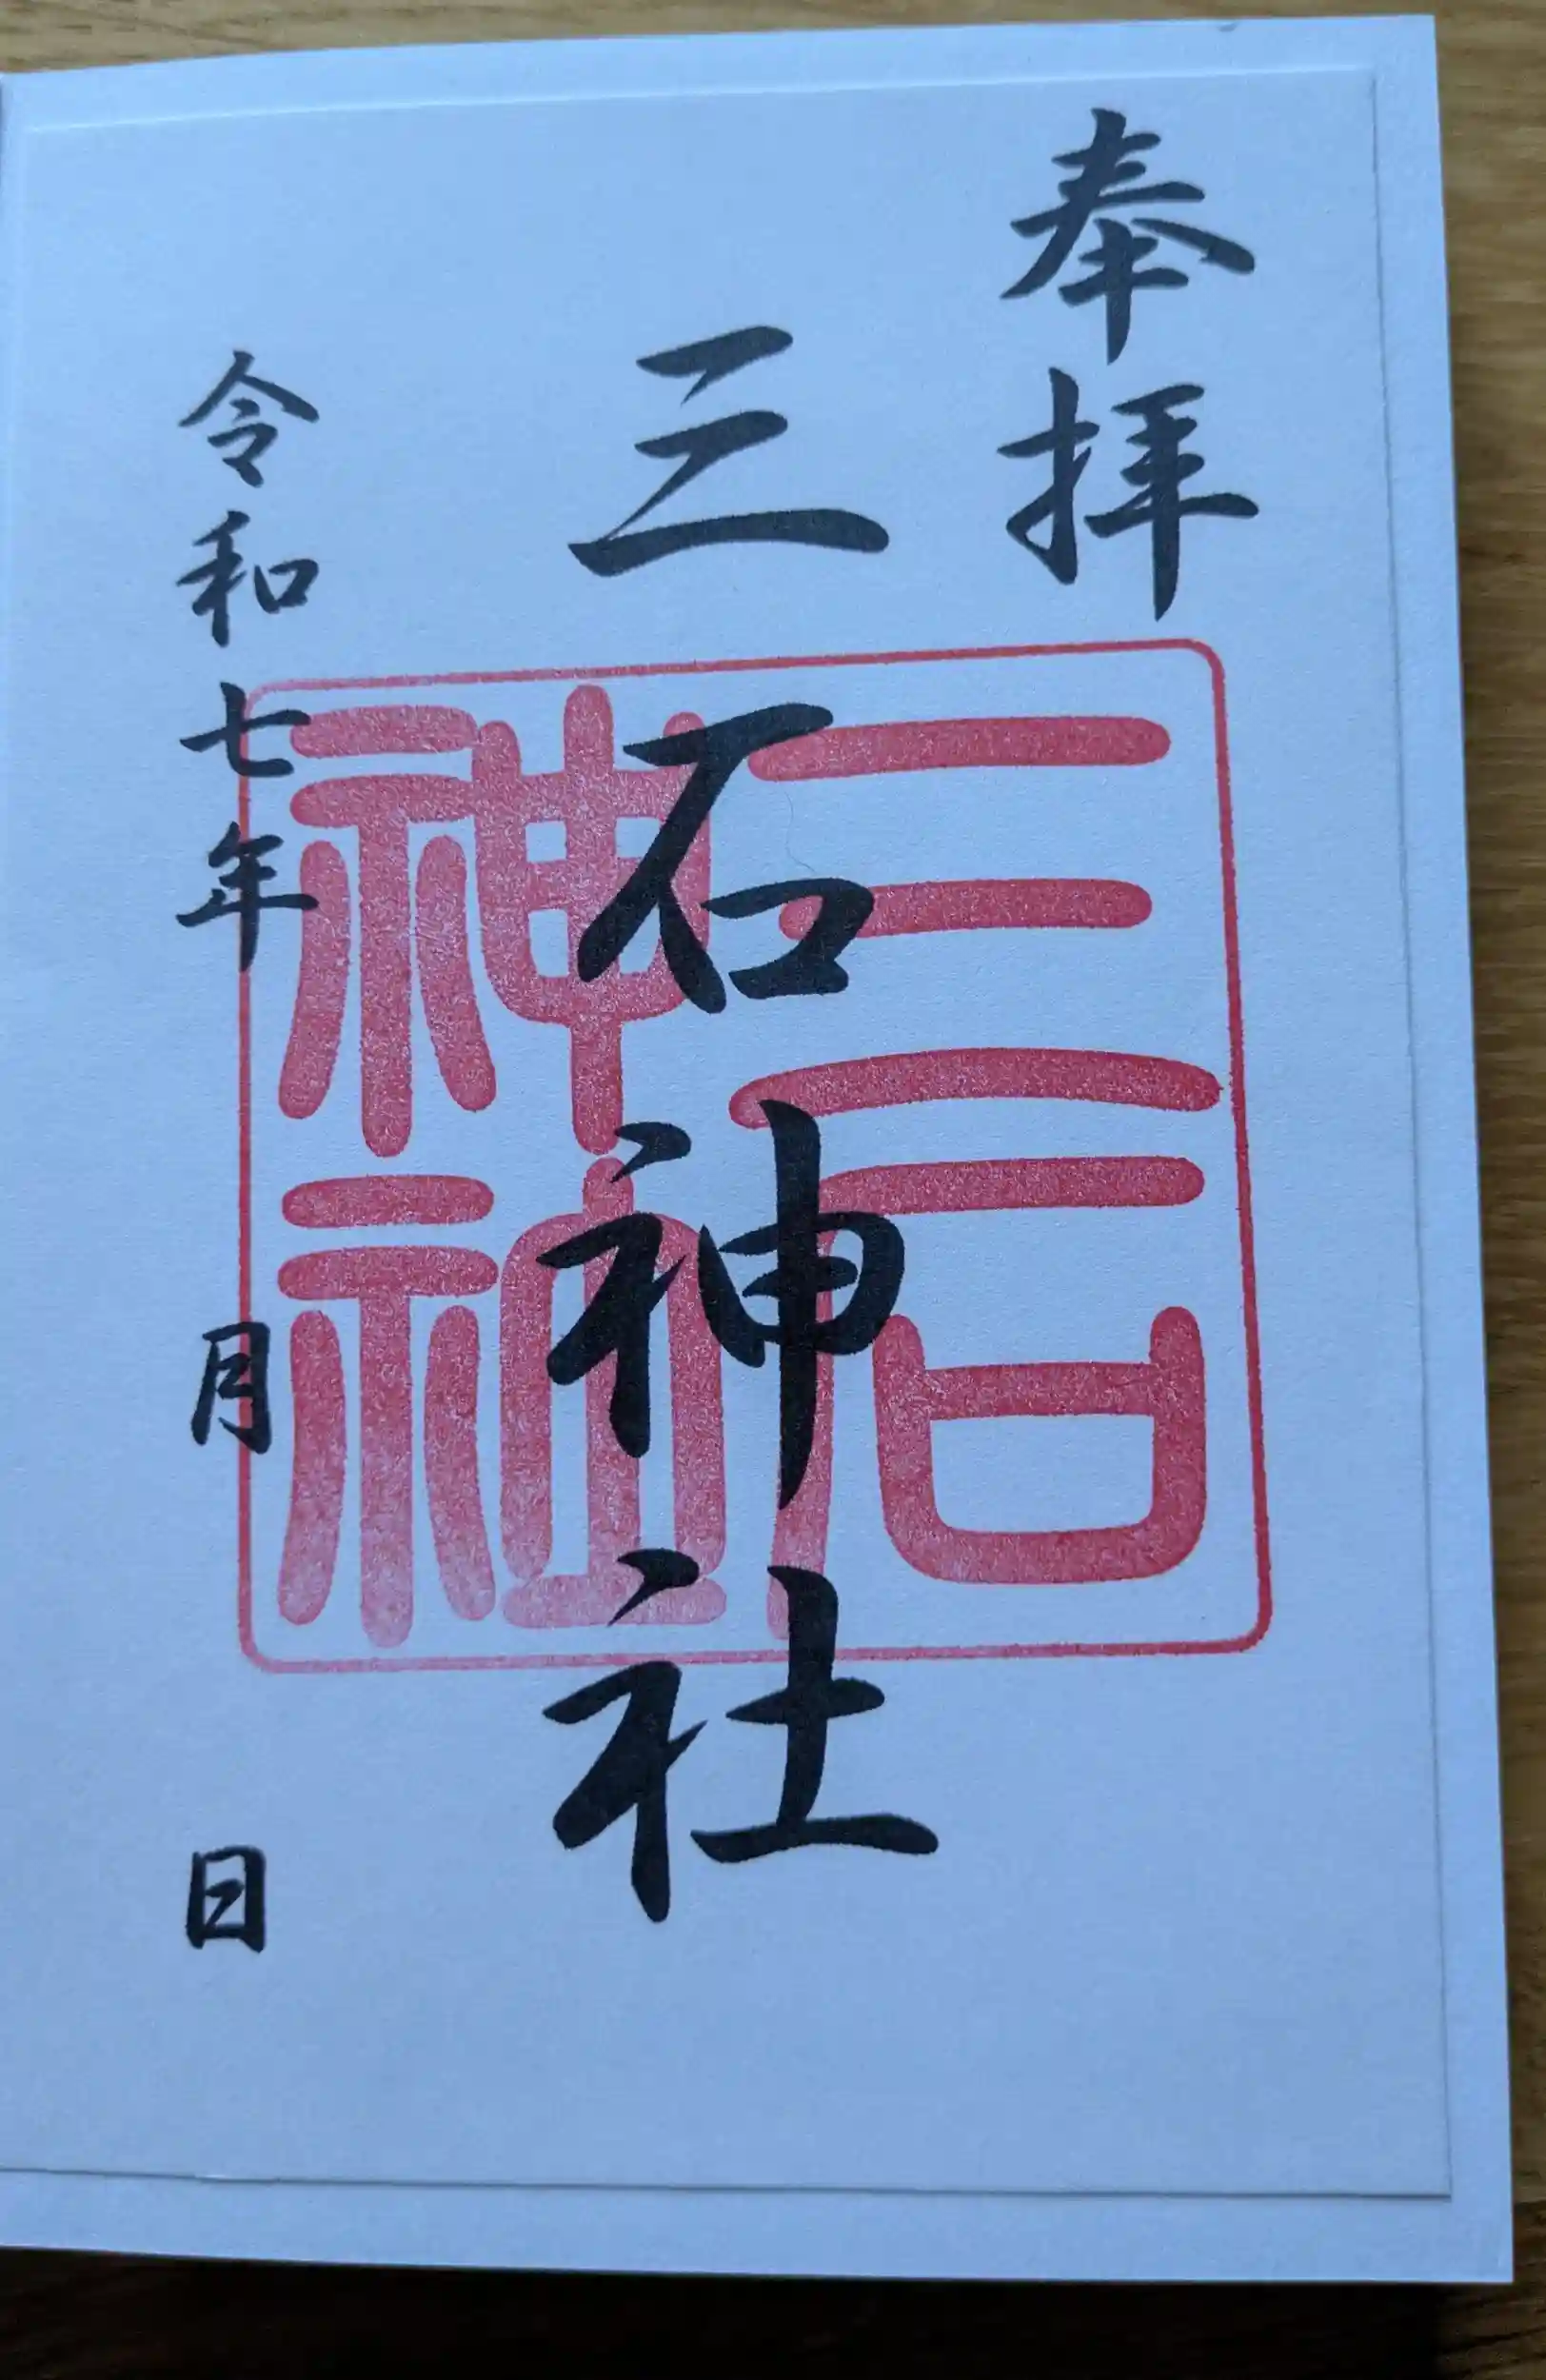 奉拝
三石神社
三石神社
令和七年 月 日